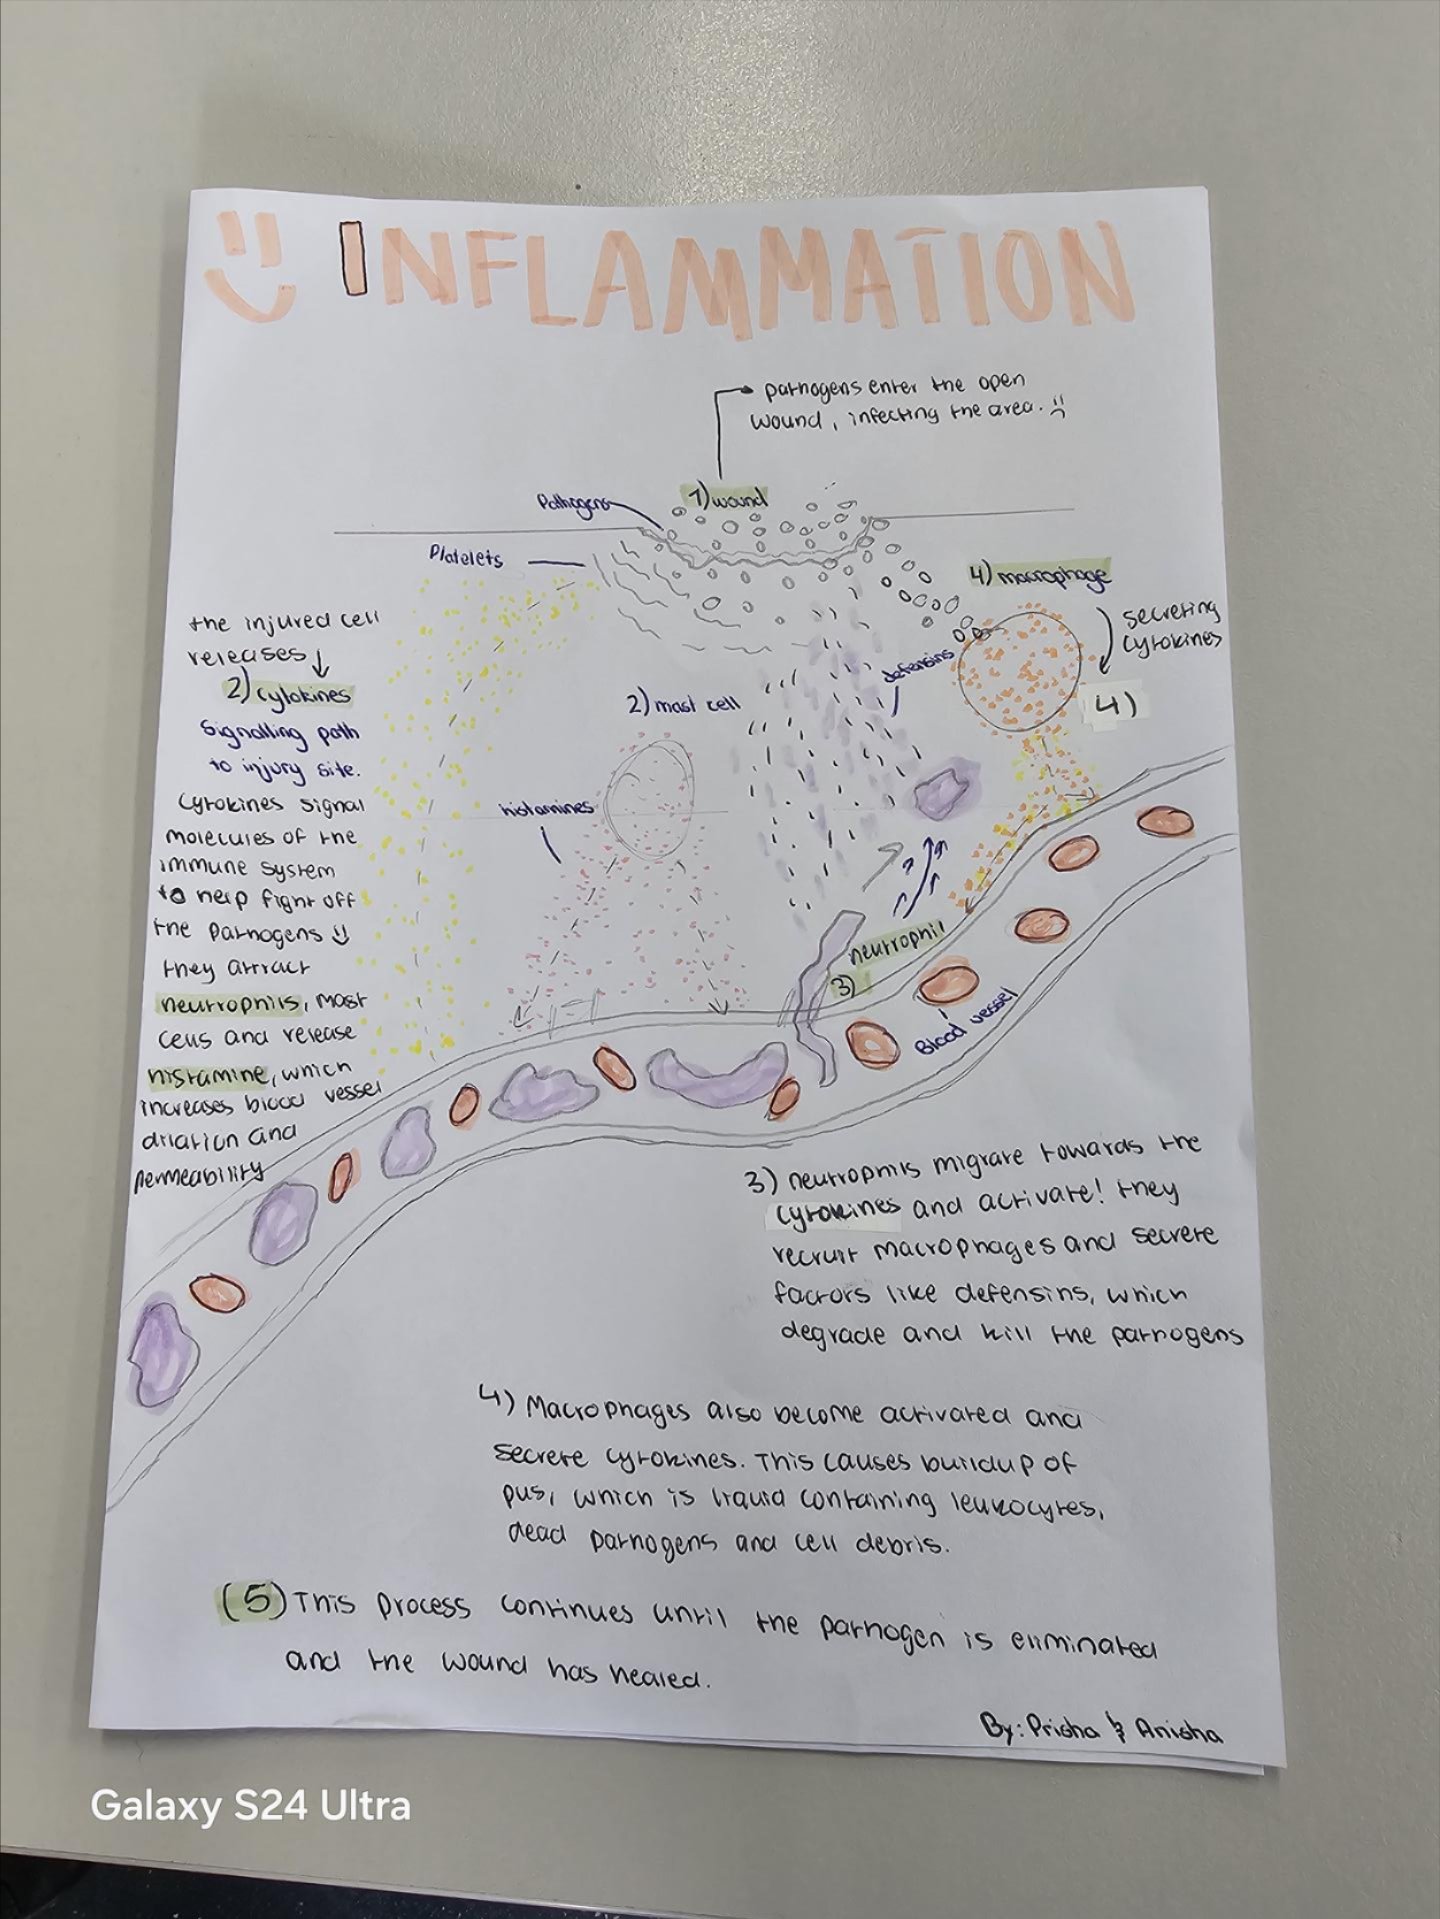 INFLAMMATION
pathogens enter the open
wound, infecting the area.
1) wound
Pathogens
Platelets
4) macrophage
secreting
cytokines
4)
the injured cell
releases
2) cytokines
signalling path
to injury site.
cytokines signal
molecules of the
immune system
to help fight off
the pathogens
they attract
neutrophils, mast
cells and release
histamine, which
increases blood vessel
dilation and
permeability
2) mast cell
defensins
histamines
neutrophil
3)
Blood vessel
3) neutrophils migrate towards the
cytokines and activate! they
recruit macrophages and secrete
factors like defensins, which
degrade and kill the pathogens
4) Macrophages also become activated and
secrete cytokines. This causes buildup of
pus, which is liquid containing leukocytes,
dead pathogens and cell debris.
(5) This process continues until the pathogen is eliminated
and the wound has healed.
By: Prisha & Anisha
Galaxy S24 Ultra